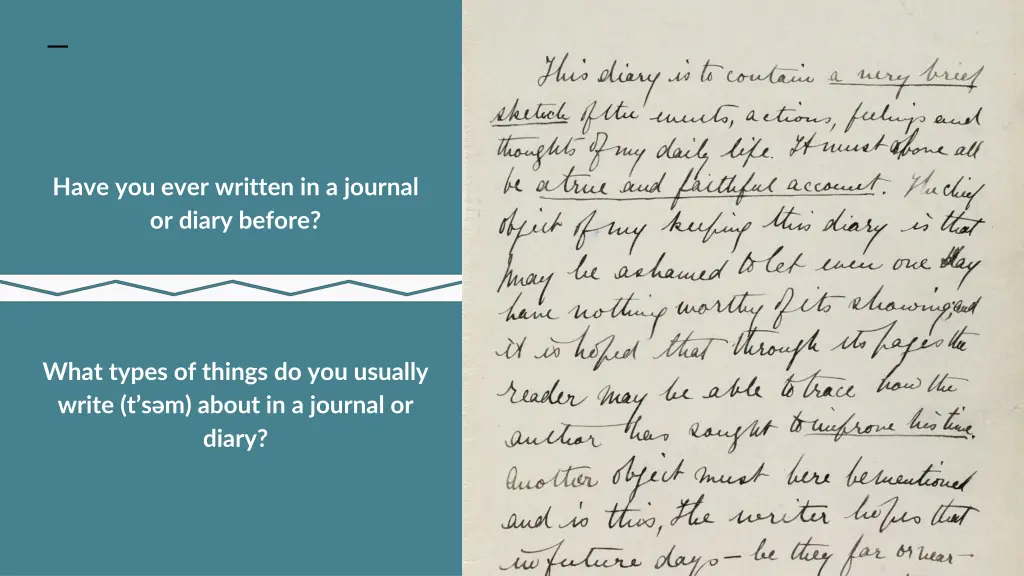 Have you ever written in a journal
or diary before?
What types of things do you usually
write (t’səm) about in a journal or
diary?
This diary is to contain a very brief
sketch of the events, actions, feelings and
thoughts of my daily life. It must above all
be a true and faithful account. The chief
object of my keeping this diary is that
I may be ashamed to let even one day
have nothing worthy of its showing, and
it is hoped that through its pages the
reader may be able to trace how the
author has sought to improve his time.
Another object must here be mentioned
and is this, the writer hopes that
in future days – be they far or near –